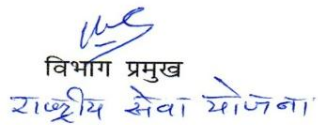 विभाग प्रमुख
राष्ट्रीय सेवा योजना